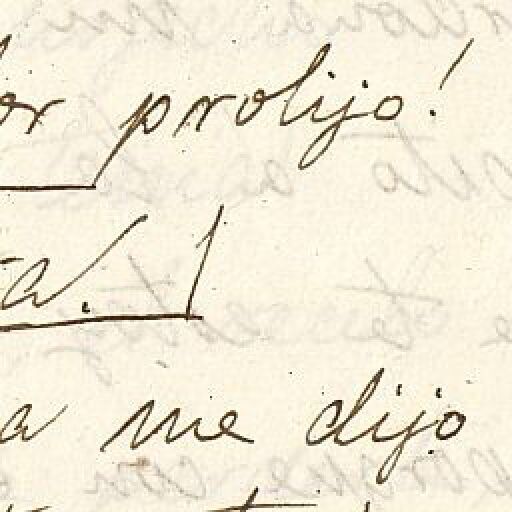 or prolijo!
a!
a me dijo